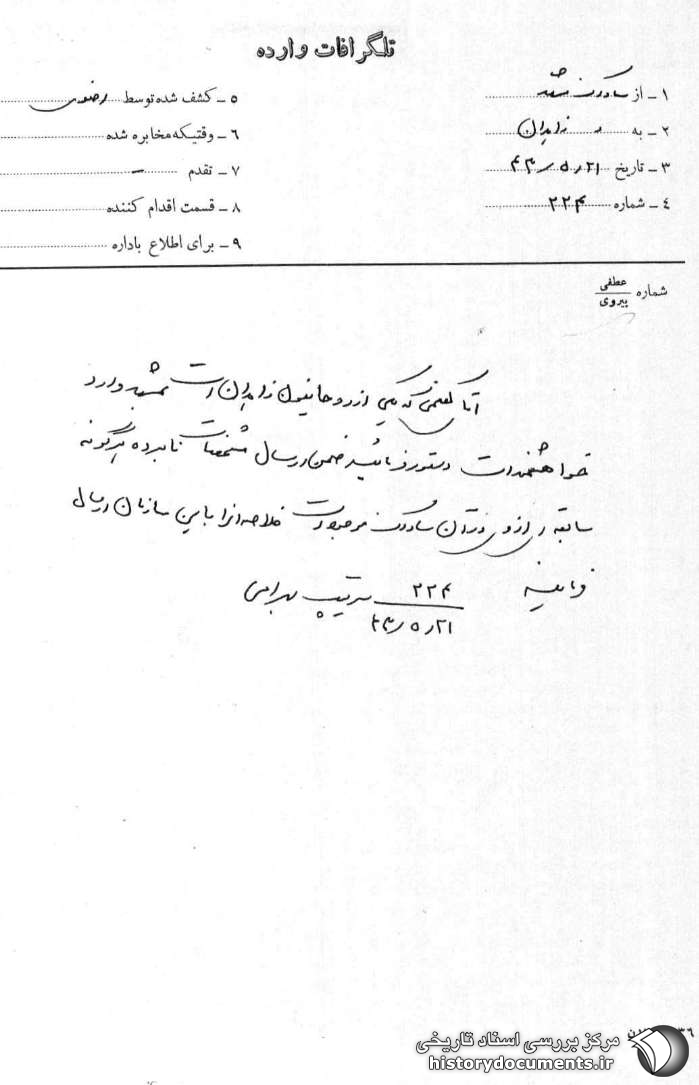 تلگرافات وارده
۱ ـ از ساواک مشهد
۲ ـ به زاهدان
۳ ـ تاریخ ۴۳/۵/۲۱
۴ ـ شماره ۲۲۴
۵ ـ کشف شده توسط رضوی
۶ ـ وقتیکه مخابره شده
۷ ـ تقدم ـ
۸ ـ قسمت اقدام کننده
۹ ـ برای اطلاع باداره
شماره عطفی
پیروی
آقای کفعمی که یکی از روحانیون زاهدان است بمشهد وارد
خواهشمند است دستور فرمائید ضمن ارسال مشخصات نامبرده هرگونه
سابقه ای از وی در آن ساواک موجود است خلاصه آنرا باین سازمان ارسال
فرمایند ۲۲۴ سرتیپ بهرامی
۴۳/۵/۲۱
۳۶
مرکز بررسی اسناد تاریخی
historydocuments.ir